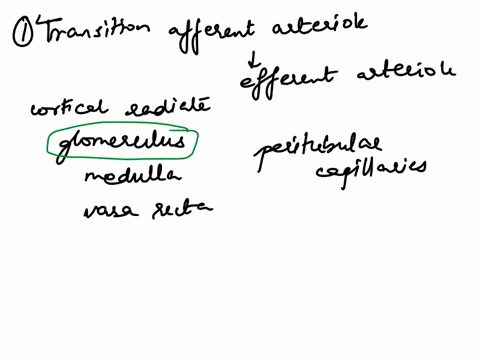 ① Transition afferent arteriole
↓
efferent arteriole
cortical radiate
glomerulus
medulla
vasa recta
peritubular
capillaries